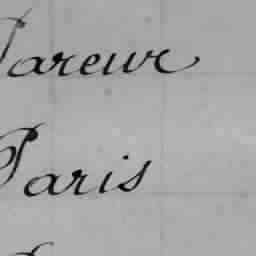 Pareur
Paris